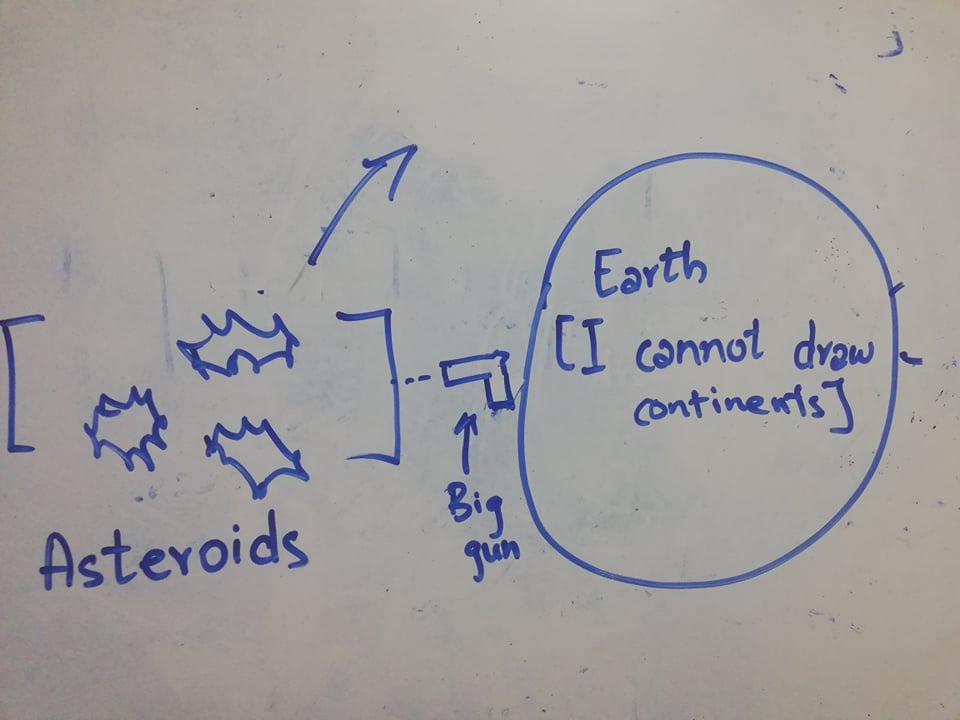 Earth
[I cannot draw
continents]
Big
gun
Asteroids